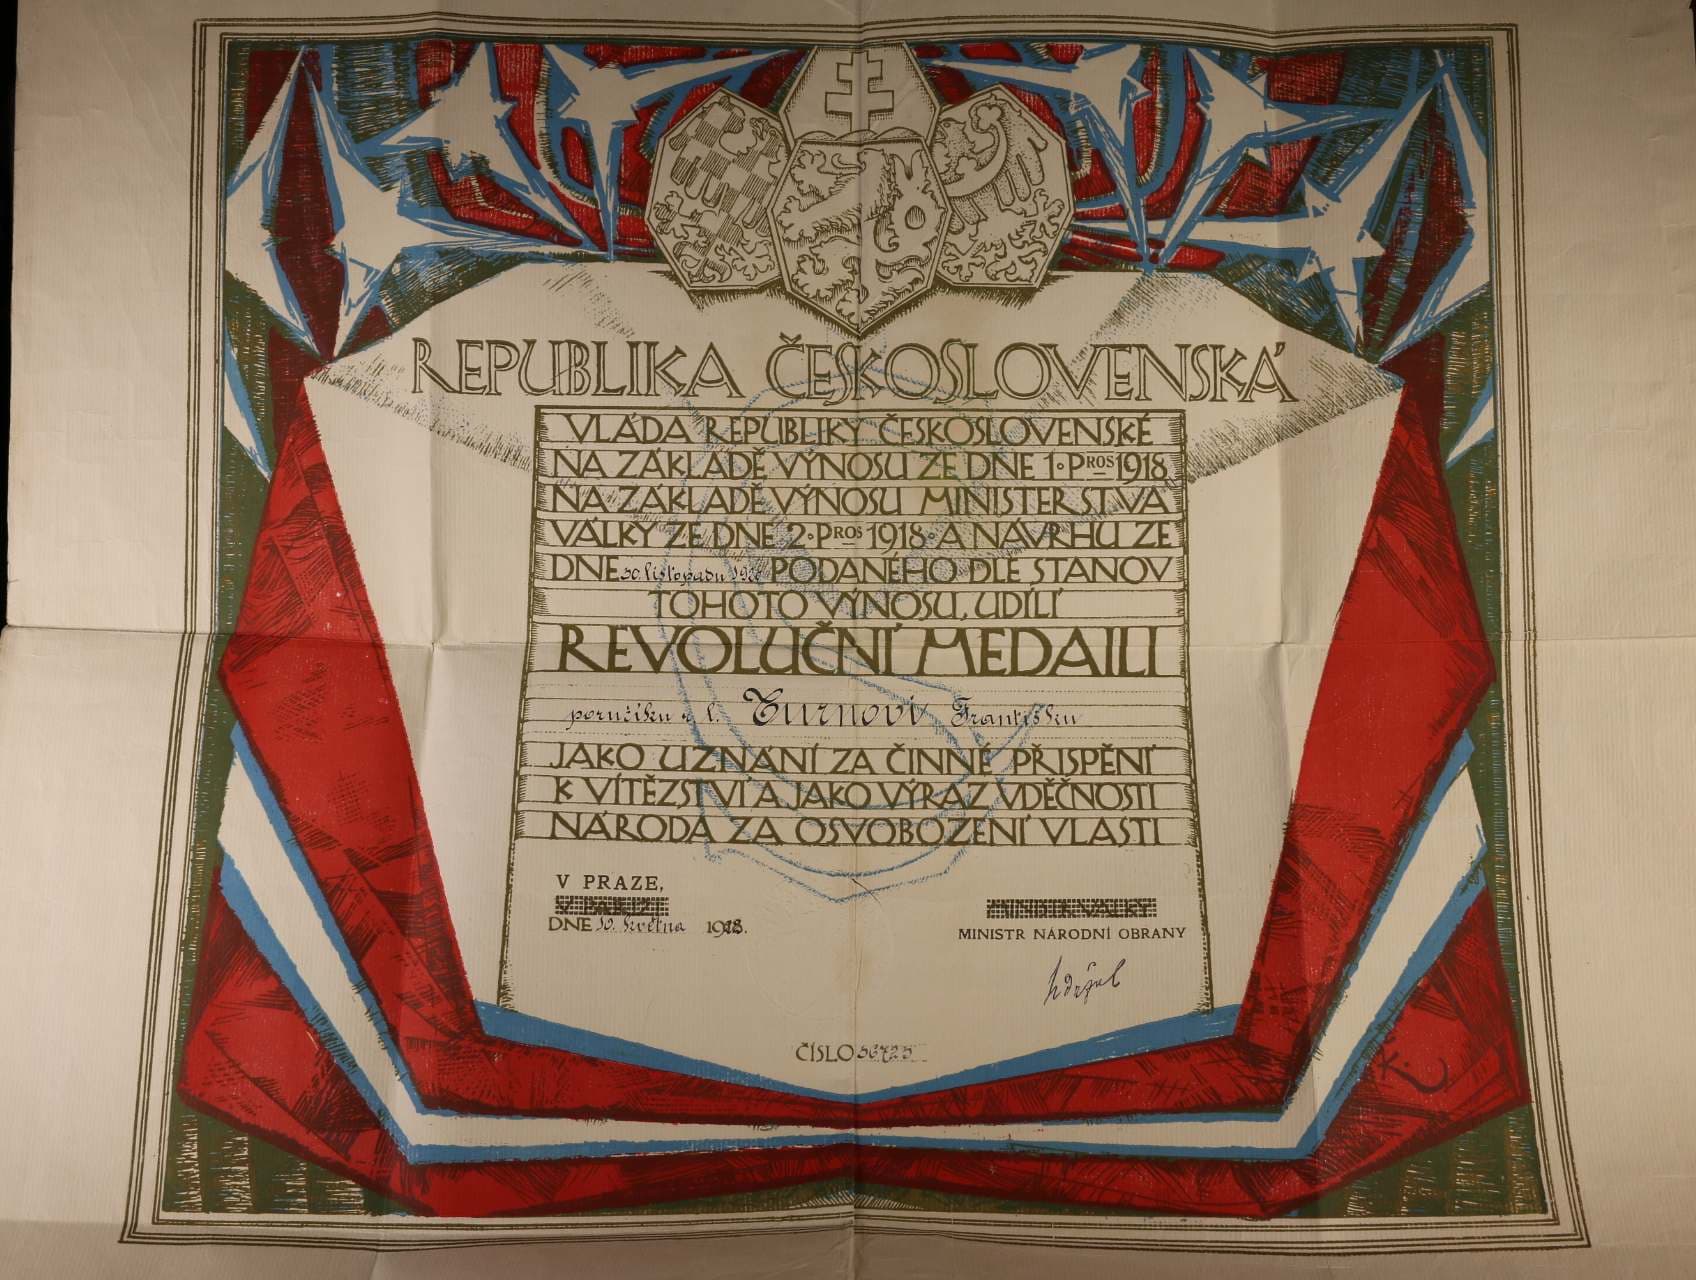 REPUBLIKA ČESKOSLOVENSKÁ
VLÁDA REPUBLIKY ČESKOSLOVENSKÉ
NA ZÁKLADĚ VÝNOSU ZE DNE 1·PROS 1918
NA ZÁKLADĚ VÝNOSU MINISTERSTVA
VÁLKY ZE DNE 2·PROS 1918·A NÁVRHU ZE
DNE 30. listopadu PODANÉHO DLE STANOV
TOHOTO VÝNOSU, UDÍLÍ
REVOLUČNÍ MEDAILI
poručíku Turnovi Františku
JAKO UZNÁNÍ ZA ČINNÉ PŘISPĚNÍ
K VÍTĚZSTVÍ A JAKO VÝRAZ VDĚČNOSTI
NÁRODA ZA OSVOBOZENÍ VLASTI
V PRAZE,
DNE 30. května
MINISTR NÁRODNÍ OBRANY
Udržal
ČÍSLO